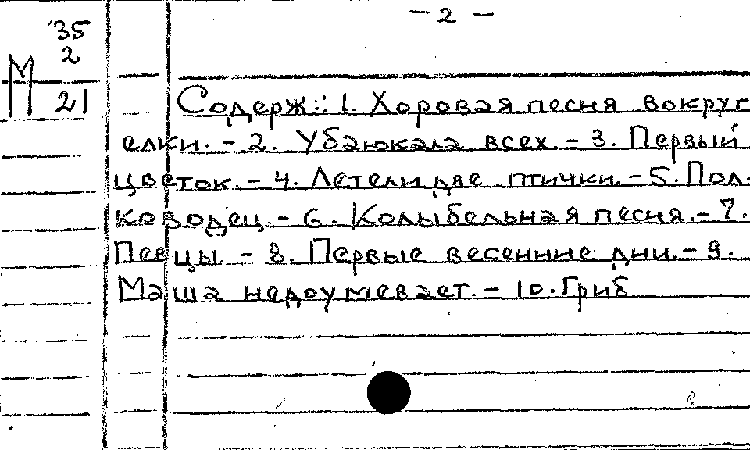 - 2 -
35
2
М 21
Содерж.: 1. Хоровая песня вокруг
елки. - 2. Убаюкала всех. - 3. Первый
цветок. - 4. Летели две птички. - 5. Пол-
ководец. - 6. Колыбельная песня. - 7.
Певцы. - 8. Первые весенние дни. - 9.
Маша недоумевает. - 10. Гриб